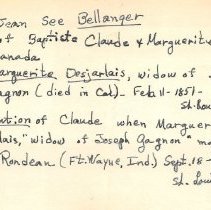 Jean See Bellanger
of Baptiste Claude & Marguerit
anada
arguerite Desjarlais, widow of
agnon (died in Cal). Feb. 11-1851-
St. Lou
ution of Claude when Marguer
lais, "widow of Joseph Gagnon" m
Rondeau (Ft. Wayne, Ind.) Sept. 18-
St. Loui